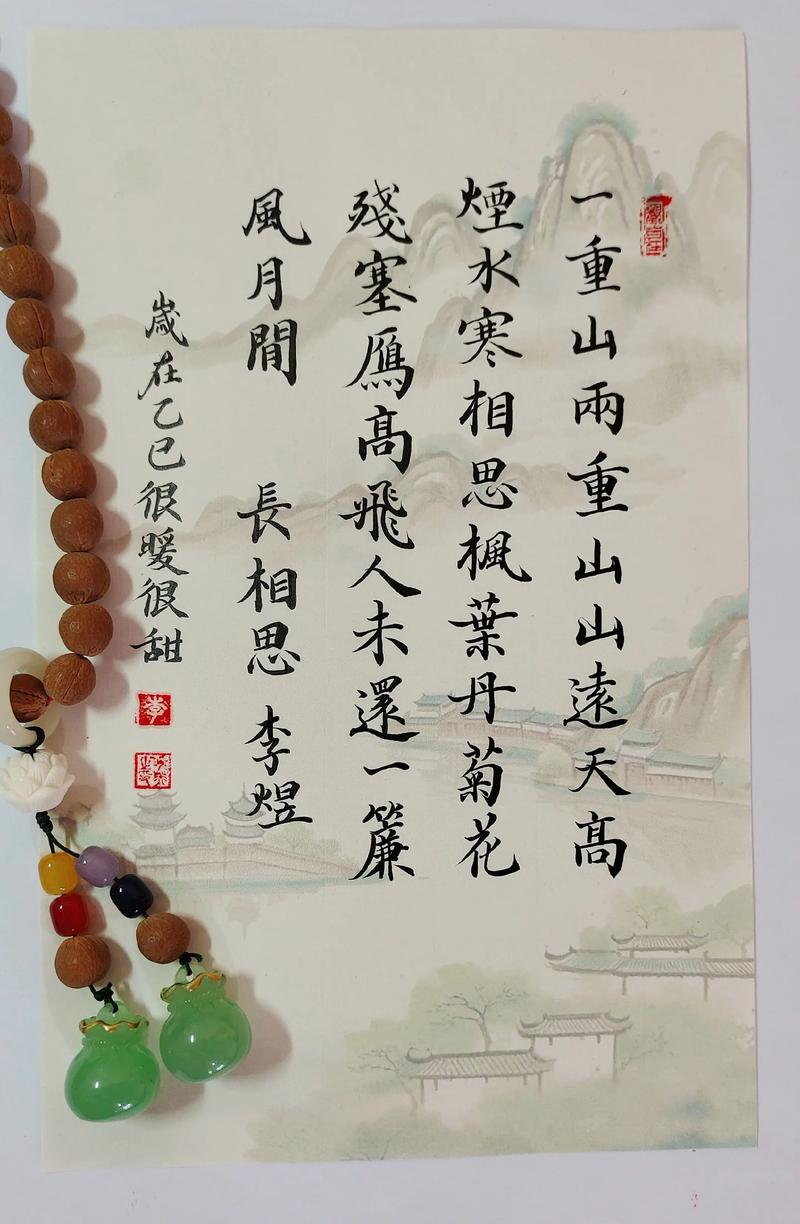 一重山兩重山山遠天高
煙水寒相思楓葉丹菊花
殘塞鴈高飛人未還一簾
風月閒 長相思 李煜
歲在乙巳很暖很甜
李